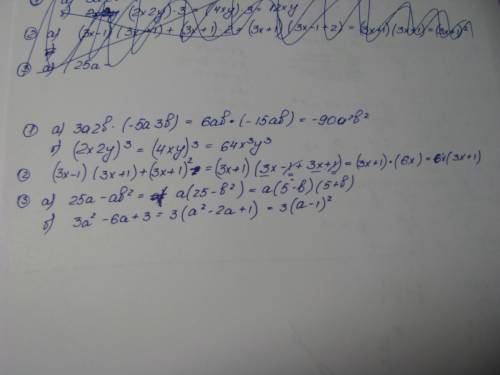 б) (2x2y)·3 = (4xy)·3 = 12xy
② а) (3x-1)(3x+1) + (3x+1)·2 = (3x+1)(3x-1+2) = (3x+1)(3x+1) = (3x+1)²
③ а) 25a -
① а) 3a2b·(-5a3b) = 6ab·(-15ab) = -90a²b²
б) (2x2y)³ = (4xy)³ = 64x³y³
② (3x-1)(3x+1)+(3x+1)² = (3x+1)(3x-1+3x+1) = (3x+1)·(6x) = 6x(3x+1)
③ а) 25a-ab² = a(25-b²) = a(5-b)(5+b)
б) 3a²-6a+3 = 3(a²-2a+1) = 3(a-1)²